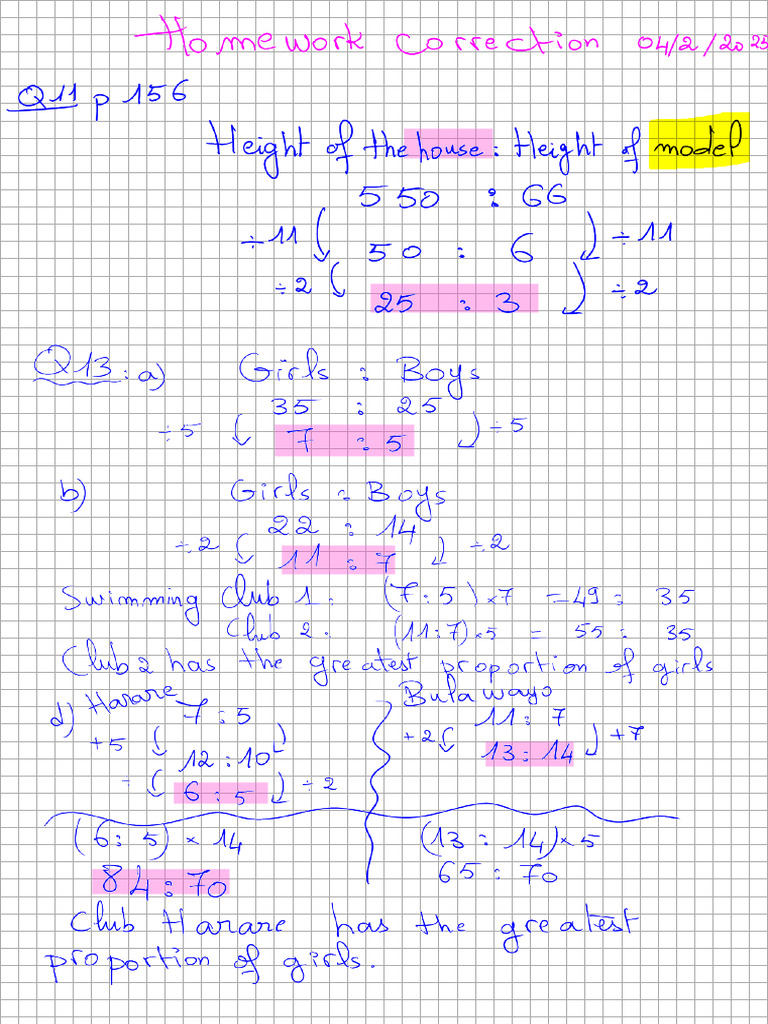 Homework correction 04/2/2025
Q11 p 156
Height of the house : Height of model
550 : 66
÷11 ÷11
50 : 6
÷2 ÷2
25 : 3
Q13 : a) Girls : Boys
35 : 25
÷5 7 : 5 ÷5
b) Girls : Boys
22 : 14
÷2 11 : 7 ÷2
Swimming Club 1 : (7 : 5) ×7 = 49 : 35
Club 2 . (11 : 7) ×5 = 55 : 35
Club 2 has the greatest proportion of girls
d) Harare Bulawayo
7 : 5 11 : 7
+5 +2 +7
12 : 10 13 : 14
÷ 6 : 5 ÷2
(6 : 5) × 14 (13 : 14) × 5
84 : 70 65 : 70
Club Harare has the greatest
proportion of girls.